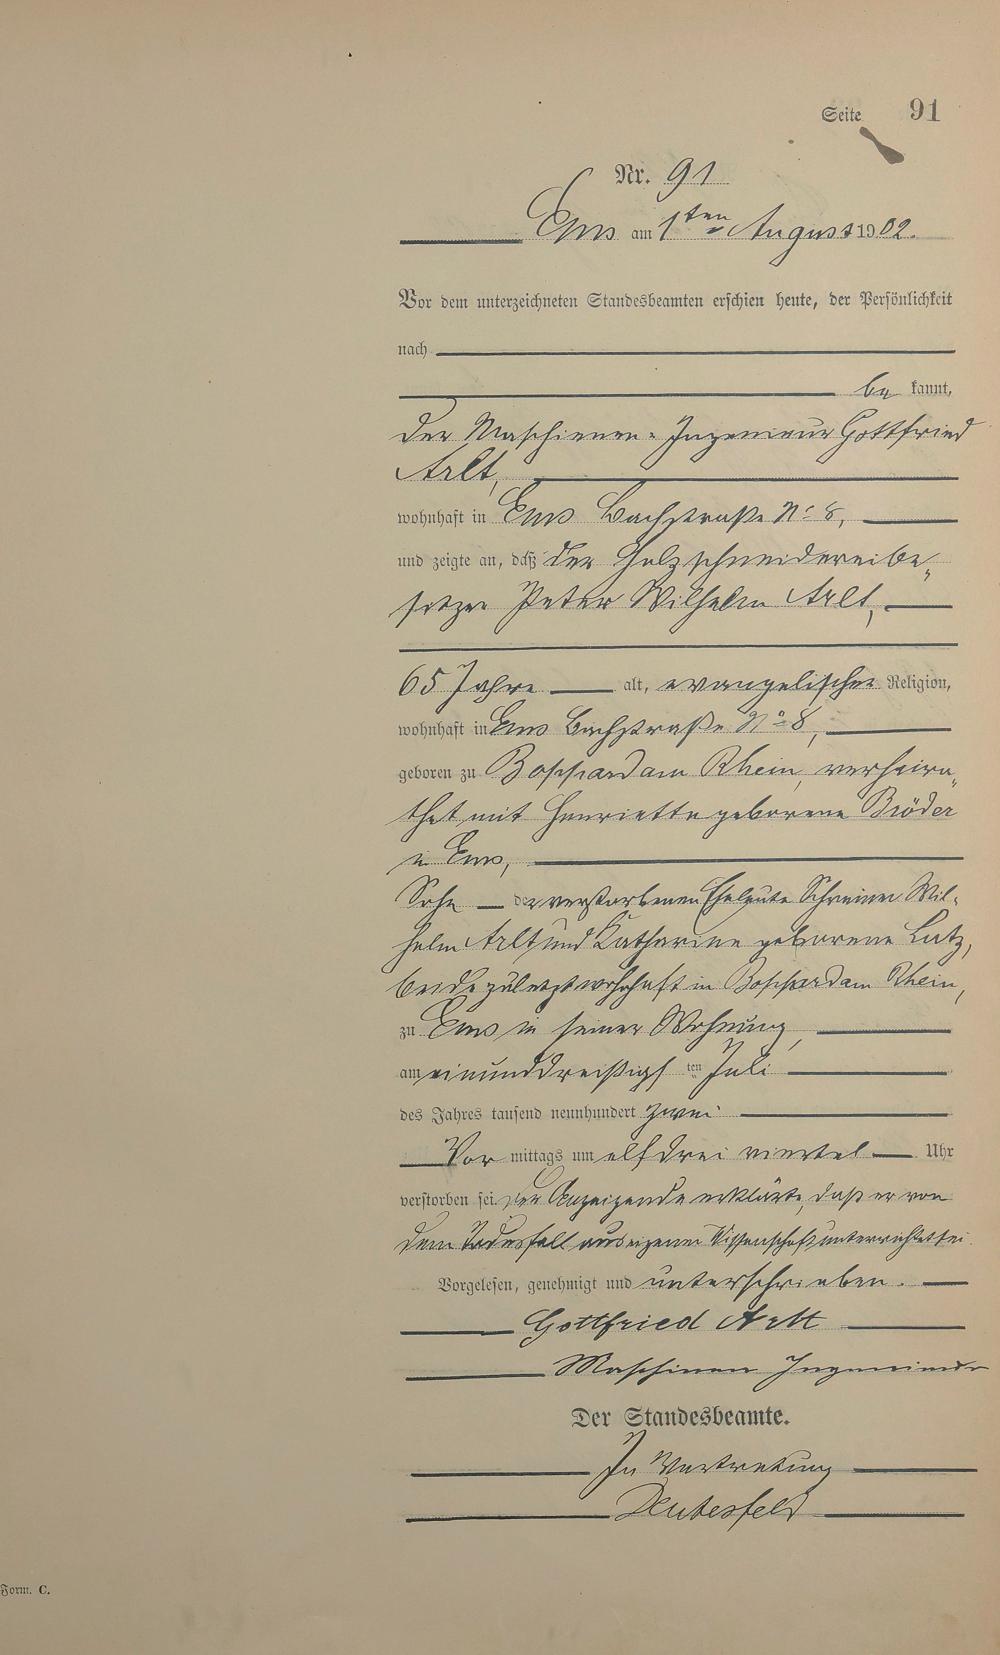 Seite 91
Nr. 91
Ems am 1ten August 1902.
Vor dem unterzeichneten Standesbeamten erschien heute, der Persönlichkeit
nach
be kannt,
der Maschienen-Ingenieur Gottfried
Arlt,
wohnhaft in Ems Bachstraße No 8,
und zeigte an, daß der Holzschneidereibe-
sitzer Peter Wilhelm Arlt,
65 Jahre alt, evangelischer Religion,
wohnhaft in Ems Bachstraße No 8,
geboren zu Boppard am Rhein, verheira-
thet mit Henriette geborene Bröder
in Ems,
Sohn der verstorbenen Eheleute Schreiner Wil-
helm Arlt und Katharine geborene Lutz,
beide zuletzt wohnhaft in Boppard am Rhein,
zu Ems in seiner Wohnung,
am einunddreißigsten Juli
des Jahres tausend neunhundert zwei
Vor mittags um elf drei viertel Uhr
verstorben sei. Der Anzeigende erklärte, daß er von
dem Todesfall aus eigener Wissenschaft unterrichtet sei.
Vorgelesen, genehmigt und unterschrieben.
Gottfried Arlt
Maschinen Ingenieur
Der Standesbeamte.
In Vertretung
Form. C.